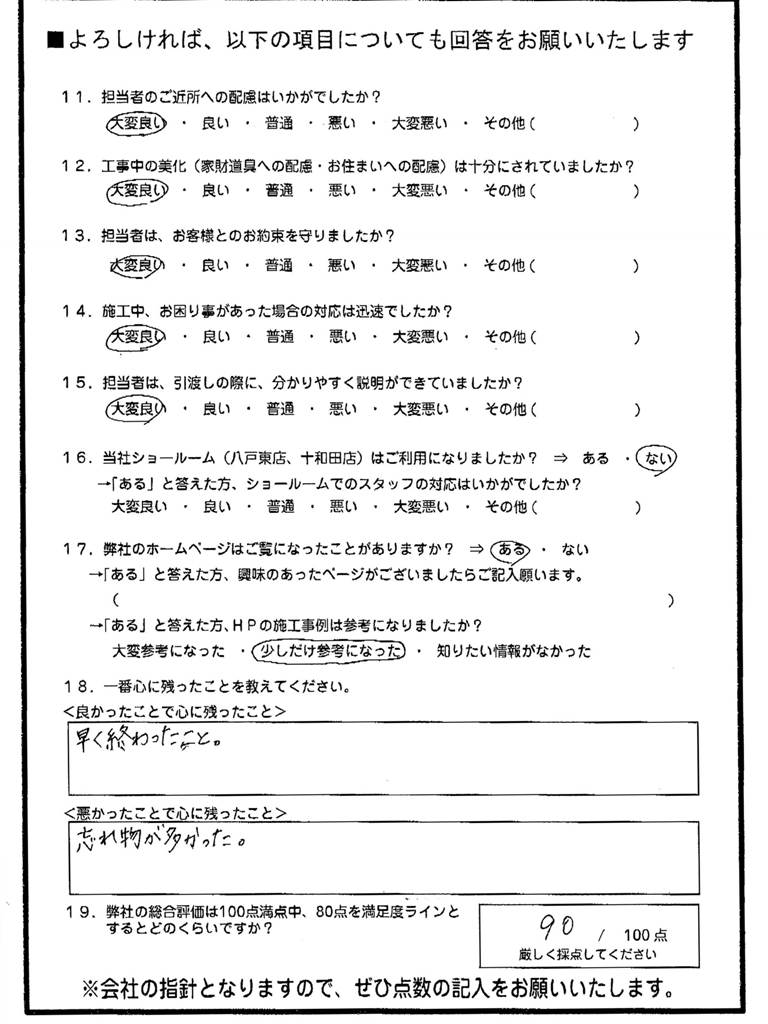 ■よろしければ、以下の項目についても回答をお願いいたします
11．担当者のご近所への配慮はいかがでしたか？
大変良い ・ 良い ・ 普通 ・ 悪い ・ 大変悪い ・ その他（ ）
12．工事中の美化（家財道具への配慮・お住まいへの配慮）は十分にされていましたか？
大変良い ・ 良い ・ 普通 ・ 悪い ・ 大変悪い ・ その他（ ）
13．担当者は、お客様とのお約束を守りましたか？
大変良い ・ 良い ・ 普通 ・ 悪い ・ 大変悪い ・ その他（ ）
14．施工中、お困り事があった場合の対応は迅速でしたか？
大変良い ・ 良い ・ 普通 ・ 悪い ・ 大変悪い ・ その他（ ）
15．担当者は、引渡しの際に、分かりやすく説明ができていましたか？
大変良い ・ 良い ・ 普通 ・ 悪い ・ 大変悪い ・ その他（ ）
16．当社ショールーム（八戸東店、十和田店）はご利用になりましたか？ ⇒ ある ・ ない
→「ある」と答えた方、ショールームでのスタッフの対応はいかがでしたか？
大変良い ・ 良い ・ 普通 ・ 悪い ・ 大変悪い ・ その他（ ）
17．弊社のホームページはご覧になったことがありますか？ ⇒ ある ・ ない
→「ある」と答えた方、興味のあったページがございましたらご記入願います。
（ ）
→「ある」と答えた方、HPの施工事例は参考になりましたか？
大変参考になった ・ 少しだけ参考になった ・ 知りたい情報がなかった
18．一番心に残ったことを教えてください。
＜良かったことで心に残ったこと＞
早く終わったこと。
＜悪かったことで心に残ったこと＞
忘れ物が多かった。
19．弊社の総合評価は100点満点中、80点を満足度ラインと
するとどのくらいですか？
90 / 100点
厳しく採点してください
※会社の指針となりますので、ぜひ点数の記入をお願いいたします。